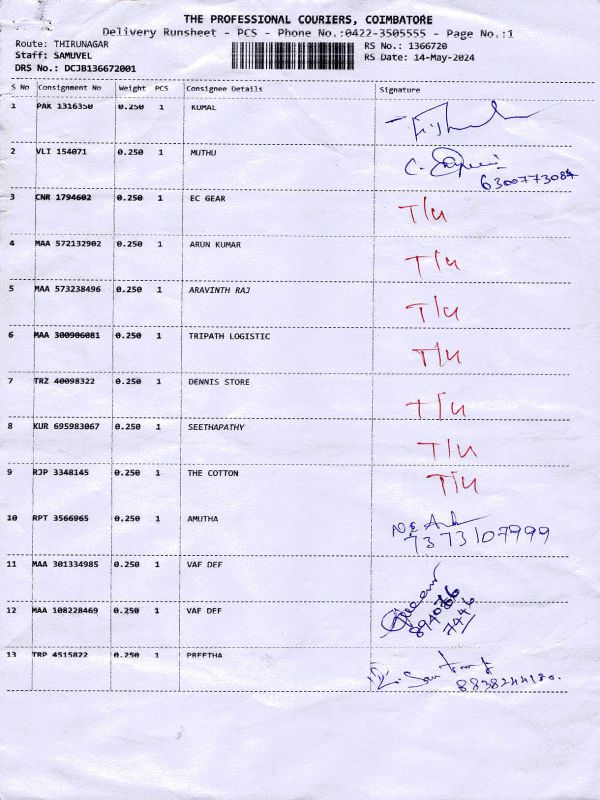 THE PROFESSIONAL COURIERS, COIMBATORE
Delivery Runsheet - PCS - Phone No.:0422-3505555 - Page No.:1
Route: THIRUNAGAR RS No.: 1366720
Staff: SAMUVEL RS Date: 14-May-2024
DRS No.: DCJB136672001
S No Consignment No Weight PCS Consignee Details Signature
1 PAK 1316350 0.250 1 KUMAL
2 VLI 154071 0.250 1 MUTHU
6300773084
3 CNR 1794602 0.250 1 EC GEAR T/U
4 MAA 572132902 0.250 1 ARUN KUMAR T/U
5 MAA 573238496 0.250 1 ARAVINTH RAJ T/U
6 MAA 300906081 0.250 1 TRIPATH LOGISTIC T/U
7 TRZ 40098322 0.250 1 DENNIS STORE T/U
8 KUR 695983067 0.250 1 SEETHAPATHY T/U
9 RJP 3348145 0.250 1 THE COTTON T/U
10 RPT 3566965 0.250 1 AMUTHA
7373107999
11 MAA 301334985 0.250 1 VAF DEF
12 MAA 108228469 0.250 1 VAF DEF
7446
13 TRP 4515822 0.250 1 PREETHA